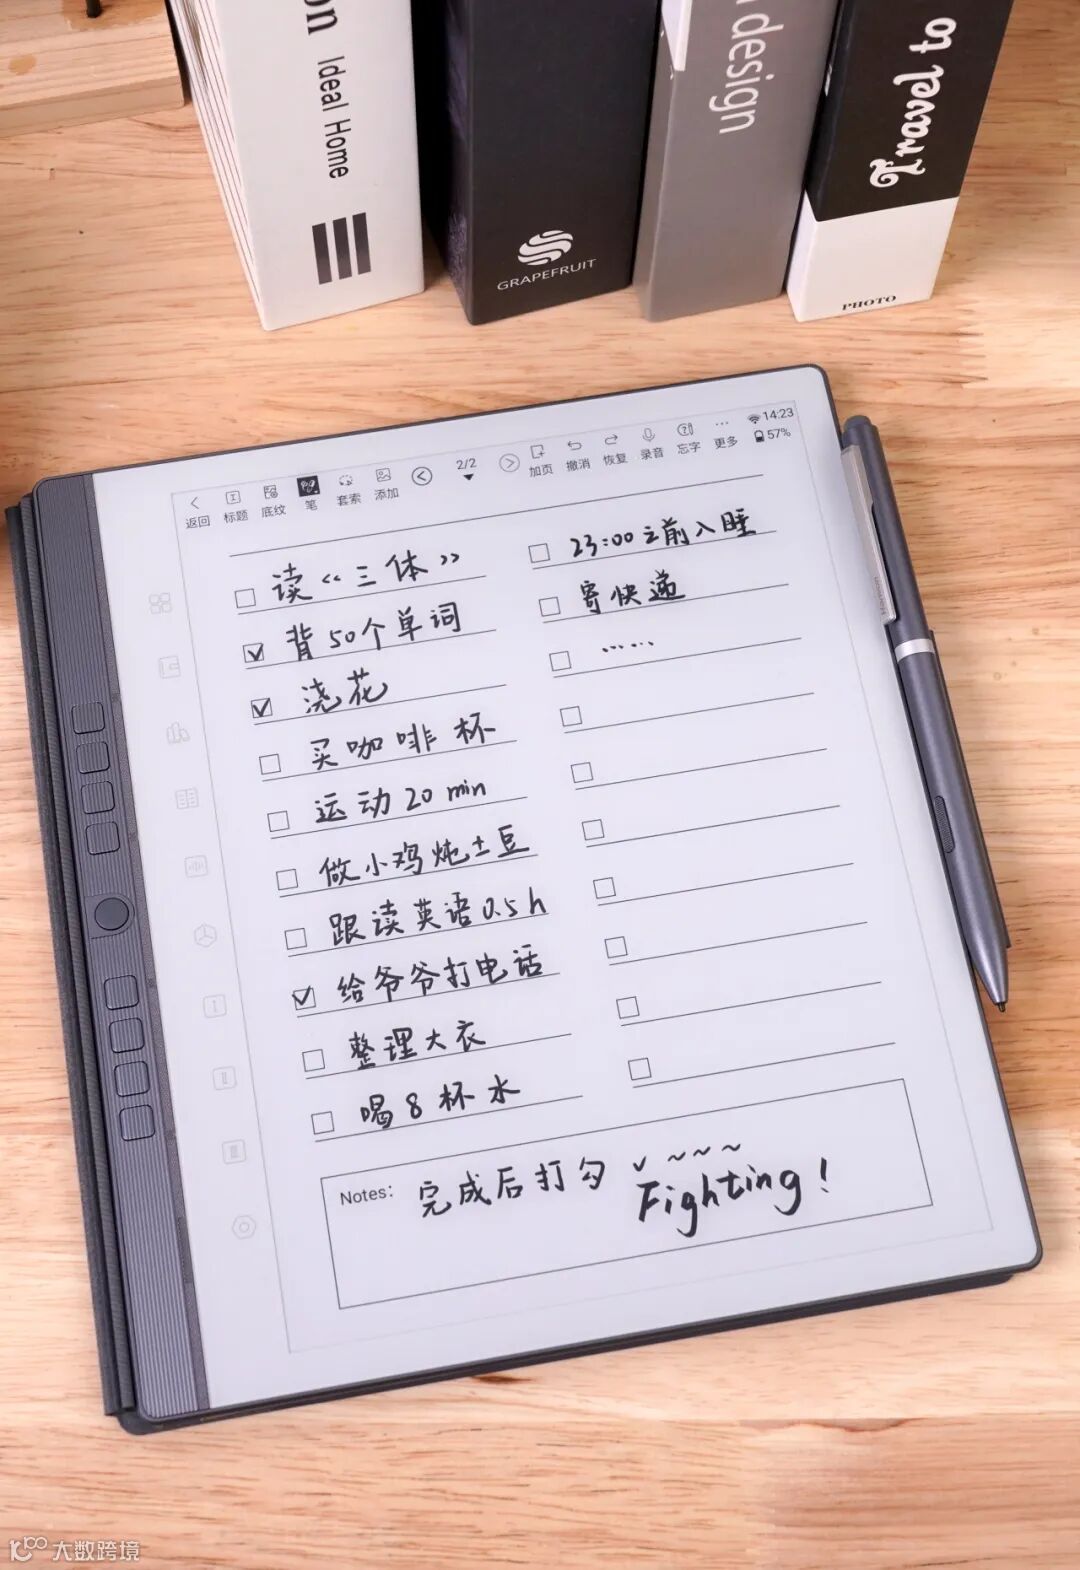 on Ideal Home
GRAPEFRUIT
design
Travel to
PHOTO
14:23
57%
2/2
返回 标题 底纹 笔 套索 添加 加页 撤消 恢复 录音 忘字 更多
读《三体》
背50个单词
浇花
买咖啡杯
运动20min
做小鸡炖土豆
跟读英语0.5h
给爷爷打电话
整理大衣
喝8杯水
23:00之前入睡
寄快递
……
Notes: 完成后打勾 ✓~~~~
Fighting!
大数跨境